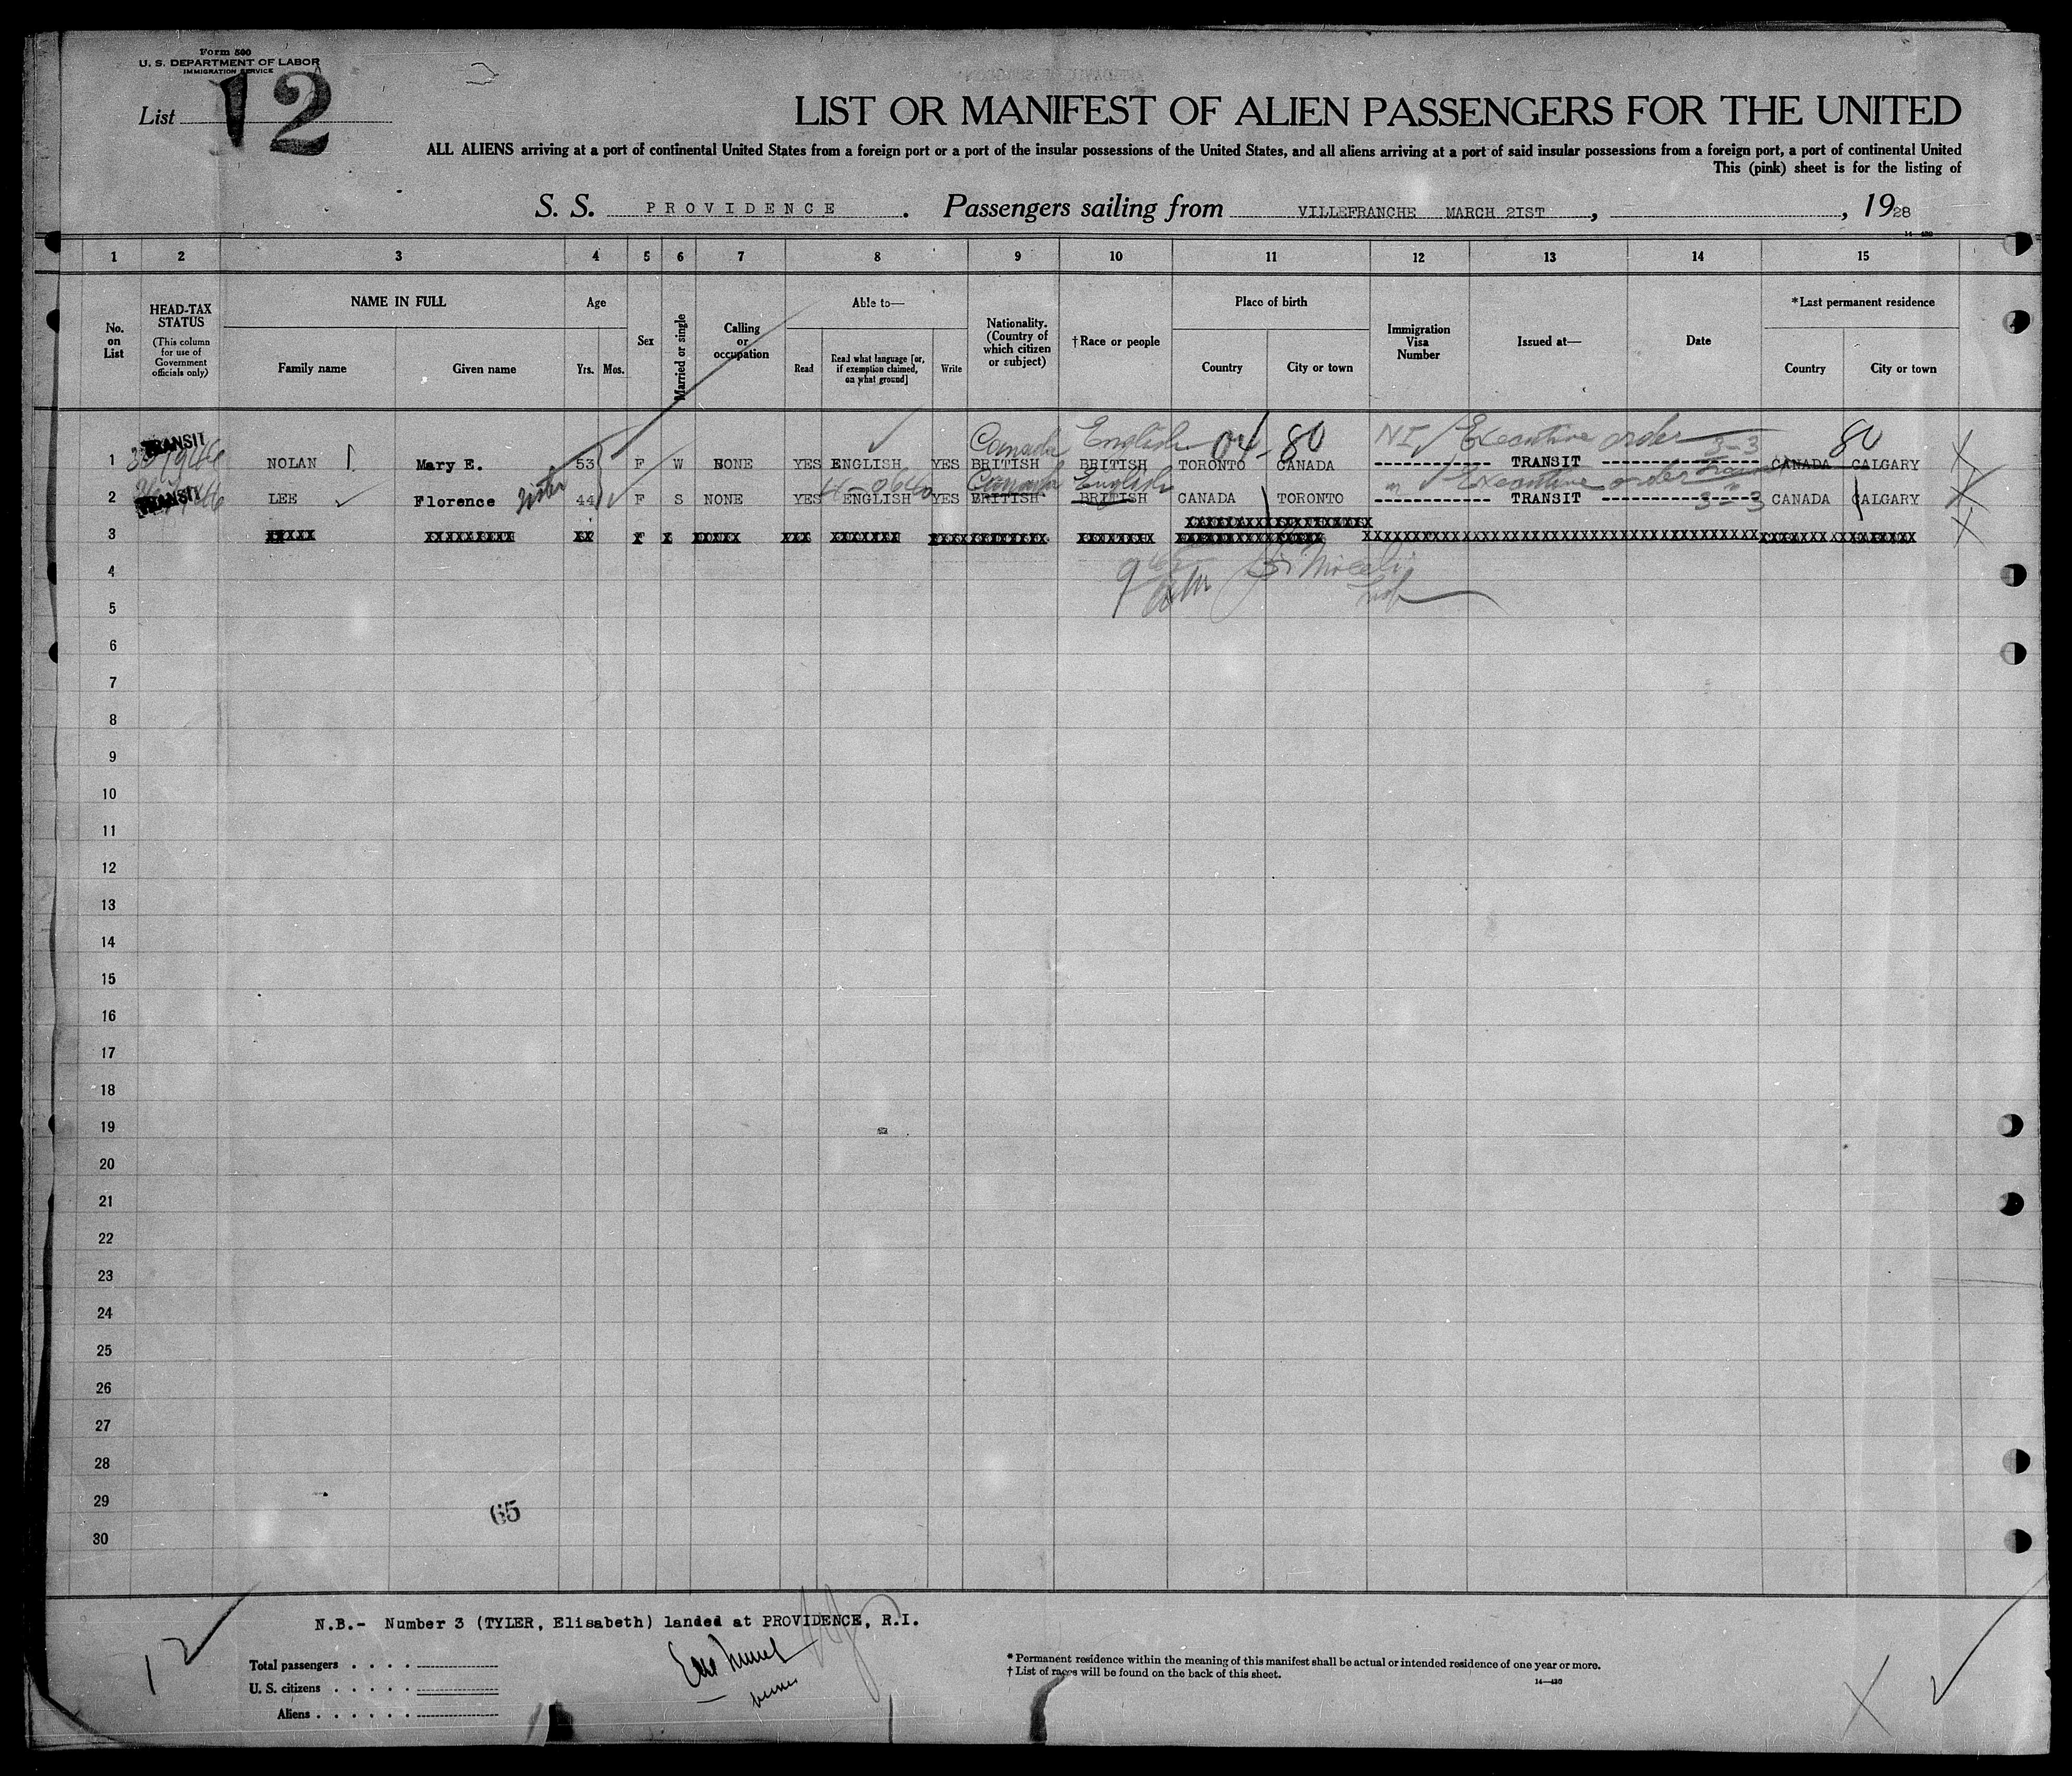 Form 500
U. S. DEPARTMENT OF LABOR
IMMIGRATION SERVICE
List 12
LIST OR MANIFEST OF ALIEN PASSENGERS FOR THE UNITED
ALL ALIENS arriving at a port of continental United States from a foreign port or a port of the insular possessions of the United States, and all aliens arriving at a port of said insular possessions from a foreign port, a port of continental United
This (pink) sheet is for the listing of
S. S. PROVIDENCE. Passengers sailing from VILLEFRANCHE MARCH 21ST, , 1928
14—430
1 2 3 4 5 6 7 8 9 10 11 12 13 14 15
No. on List
HEAD-TAX STATUS
(This column for use of Government officials only)
NAME IN FULL
Family name
Given name
Age
Yrs. Mos.
Sex
Married or single
Calling or occupation
Able to—
Read
Read what language [or, if exemption claimed, on what ground]
Write
Nationality. (Country of which citizen or subject)
†Race or people
Place of birth
Country
City or town
Immigration Visa Number
Issued at—
Date
*Last permanent residence
Country
City or town
TRANSIT Canada English 04-80 NI Executive order 3-3 80
1 NOLAN Mary E. 53 F W NONE YES ENGLISH YES BRITISH BRITISH TORONTO CANADA TRANSIT CANADA CALGARY
TRANSIT Canada English Executive order 3-3
2 LEE Florence sister 44 F S NONE YES ENGLISH YES BRITISH BRITISH CANADA TORONTO TRANSIT CANADA CALGARY
3
4
5
6
7
8
9
10
11
12
13
14
15
16
17
18
19
20
21
22
23
24
25
26
27
28
29
30
65
N.B.- Number 3 (TYLER, Elisabeth) landed at PROVIDENCE, R.I.
12
Total passengers
U. S. citizens
Aliens
* Permanent residence within the meaning of this manifest shall be actual or intended residence of one year or more.
† List of races will be found on the back of this sheet.
14—430